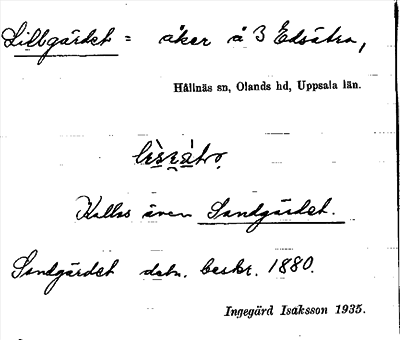 Lillgärdet = åker å 3 Edsätra,
Hållnäs sn, Olands hd, Uppsala län.
Kallas även Sandgärdet.
Sandgärdet datn. beskr. 1880.
Ingegärd Isaksson 1935.